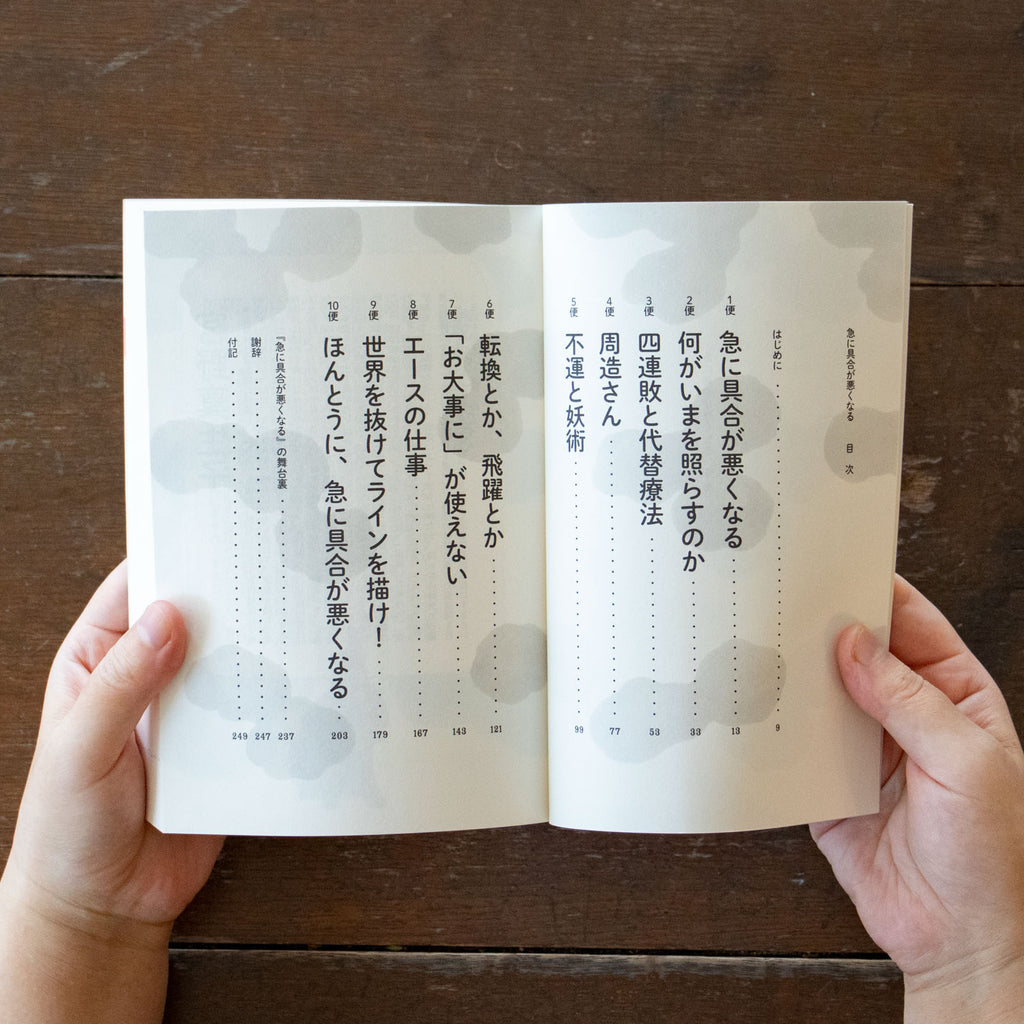 急に具合が悪くなる 目次
はじめに 9
1便 急に具合が悪くなる 13
2便 何がいまを照らすのか 33
3便 四連敗と代替療法 53
4便 周造さん 77
5便 不運と妖術 99
6便 転換とか、飛躍とか 121
7便 「お大事に」が使えない 143
8便 エースの仕事 167
9便 世界を抜けてラインを描け！ 179
10便 ほんとうに、急に具合が悪くなる 203
『急に具合が悪くなる』の舞台裏 237
謝辞 247
付記 249